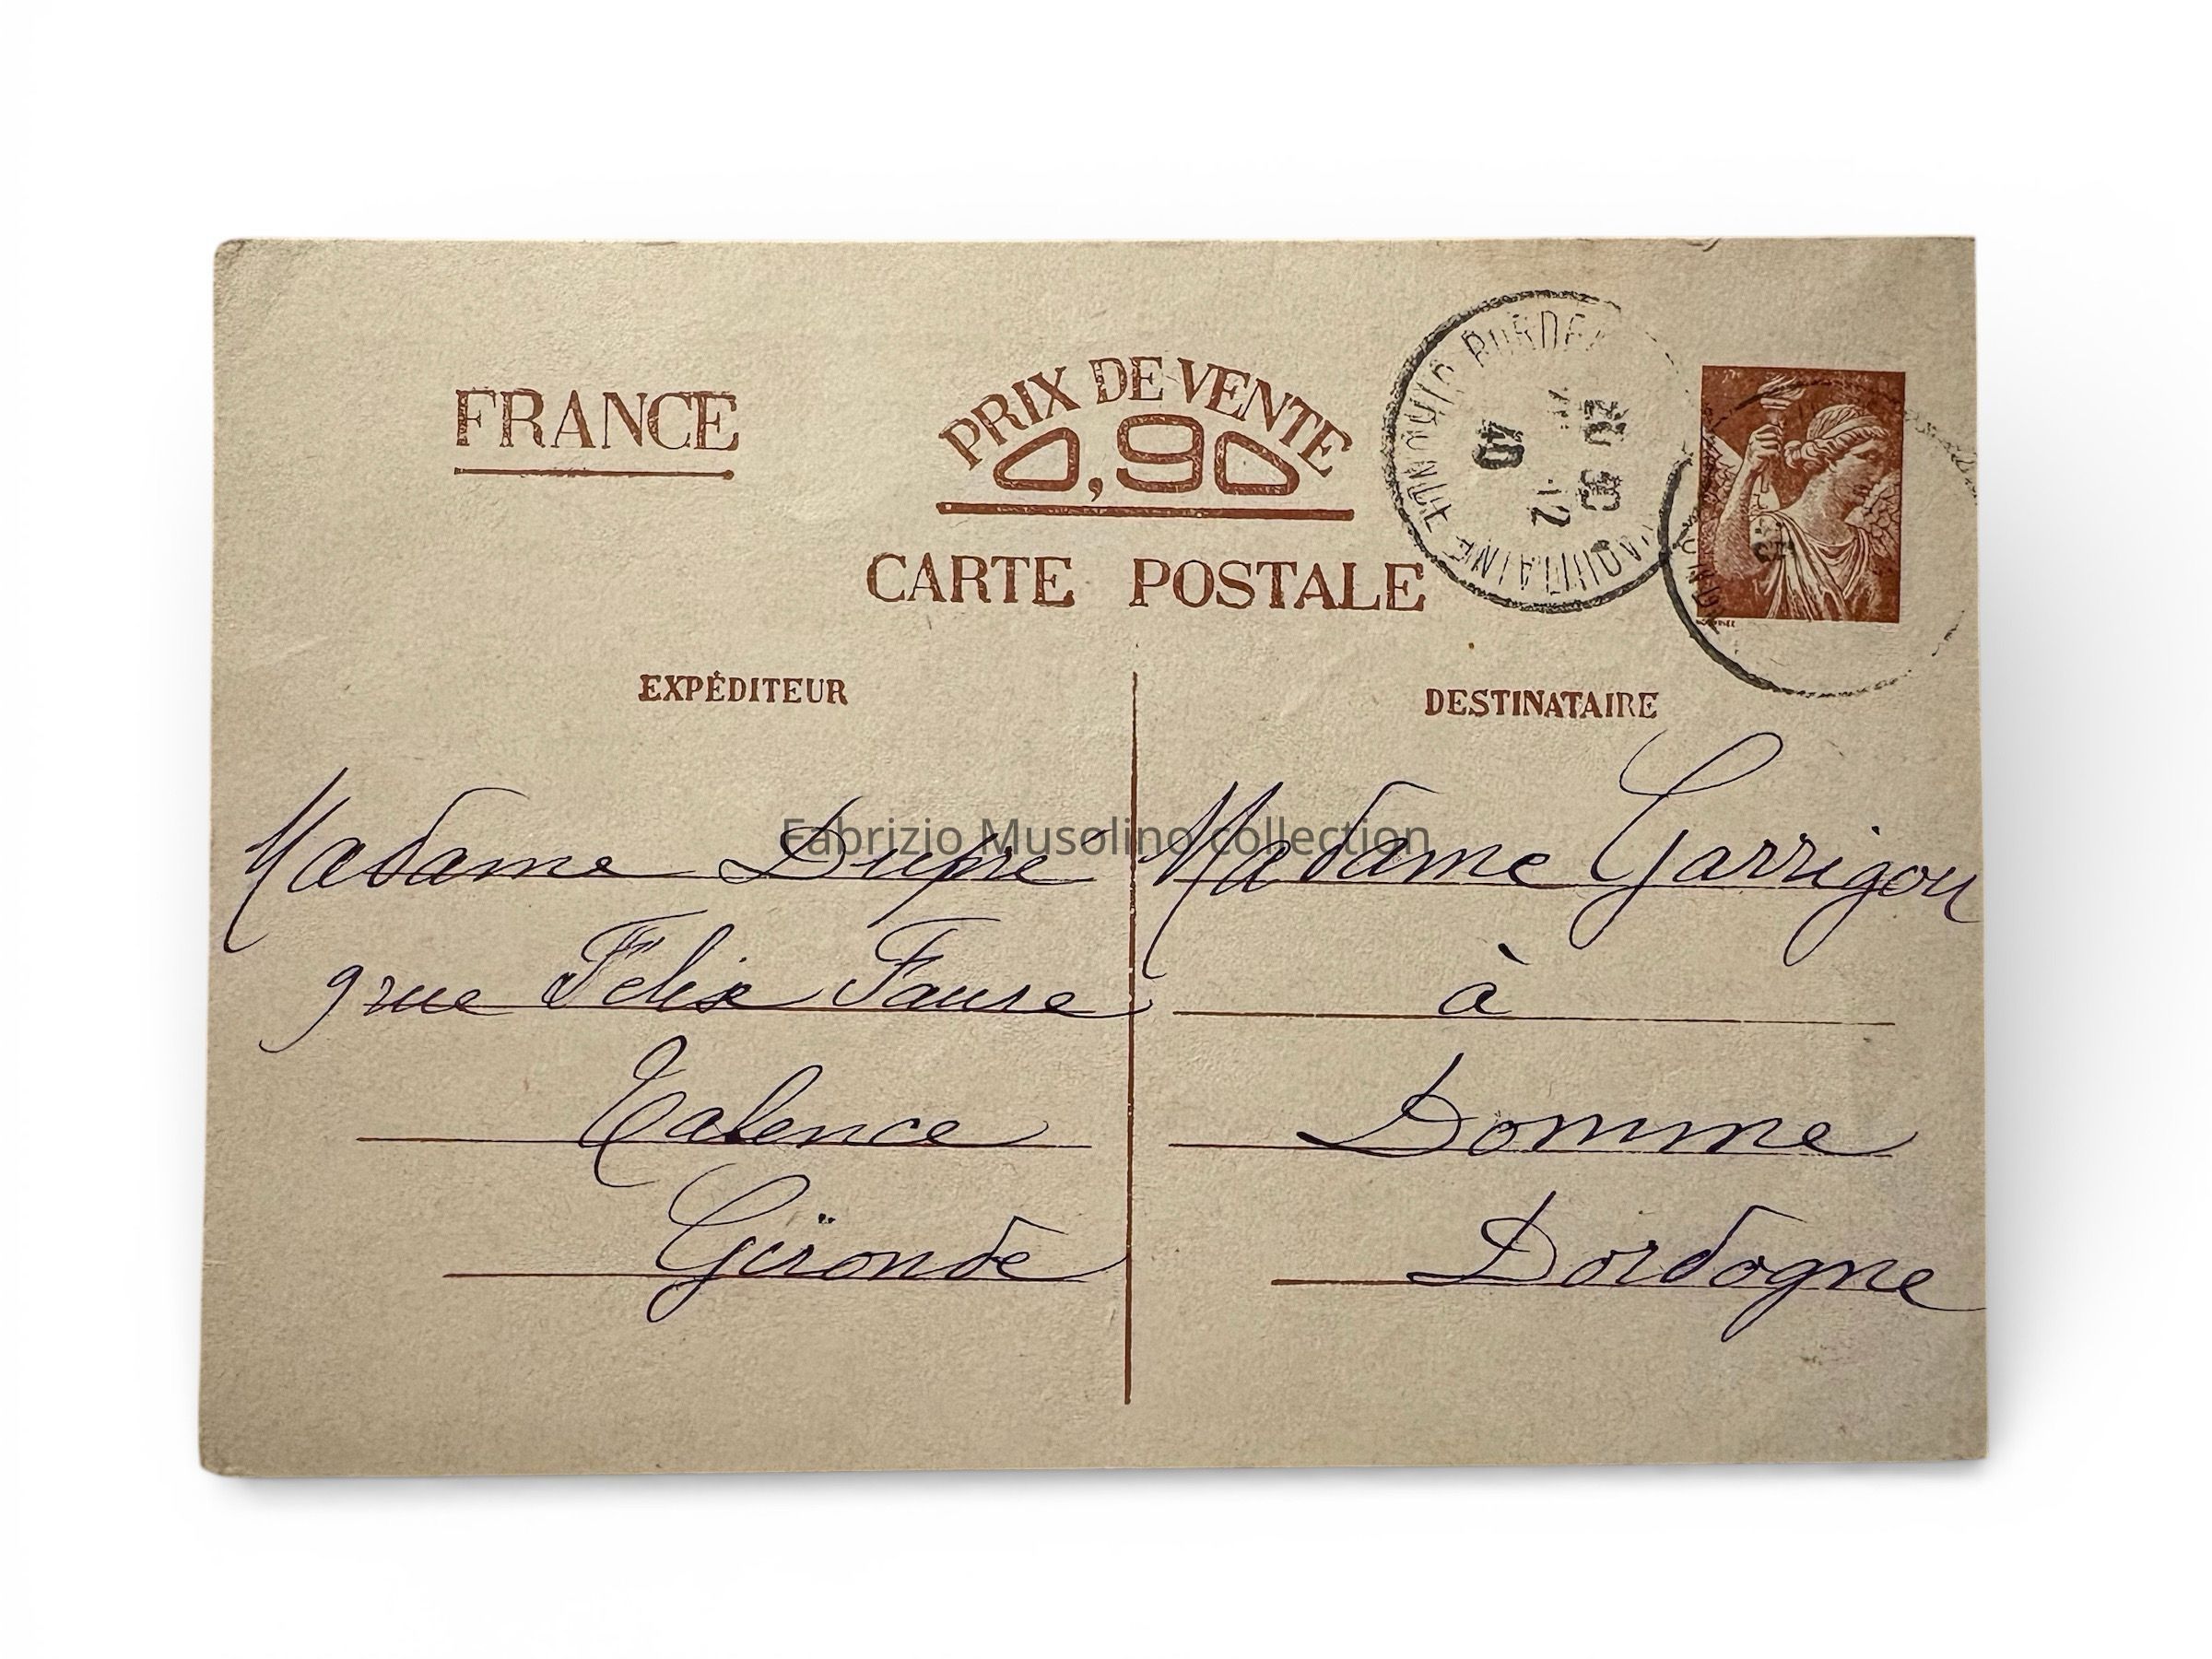 FRANCE
PRIX DE VENTE
0,90
CARTE POSTALE
40
-12
EXPÉDITEUR
Madame Dupré
9 rue Félix Faure
Talence
Gironde
DESTINATAIRE
Madame Garrigou
à
Domme
Dordogne
Fabrizio Musolino collection